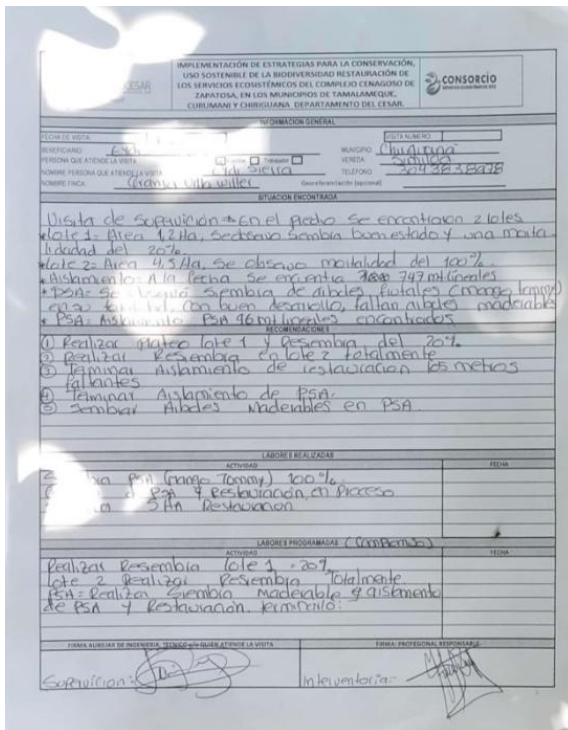 IMPLEMENTACIÓN DE ESTRATEGIAS PARA LA CONSERVACIÓN,
USO SOSTENIBLE DE LA BIODIVERSIDAD RESTAURACIÓN DE
LOS SERVICIOS ECOSISTÉMICOS DEL COMPLEJO CENAGOSO DE
ZAPATOSA, EN LOS MUNICIPIOS DE TAMALAMEQUE,
CURUMANI Y CHIRIGUANA DEPARTAMENTO DEL CESAR.
CONSORCIO
INFORMACIÓN GENERAL
FECHA DE VISITA: VISITA NUMERO:
BENEFICIARIO: MUNICIPIO: Chiriguana
PERSONA QUE ATIENDE LA VISITA Trabajador VEREDA:
NOMBRE PERSONA QUE ATIENDE LA VISITA Sierra TELEFONO: 3043838978
NOMBRE FINCA: Granja Villa Willer Georeferenciación (opcional)
SITUACION ENCONTRADA
Visita de Supervición En el predio Se encontraron 2 lotes
*Lote 1= Area 1,2 Ha, Se observo Siembra buen estado y una morta
lidadad del 20%.
*Lote 2= Area 4,5 Ha, Se observo mortalidad del 100%.
*Aislamiento= A la fecha Se encuentra 747 mt lineales
*PSA= Siembra de arboles frutales (mango tommy)
en su totalidad, con buen desarrollo, faltan arboles maderables
*PSA= Aislamiento PSA 96 mt lineales encontrados
RECOMENDACIONES
① Realizar Plateo lote 1 y Resiembra del 20%
② Realizar Resiembra en lote 2 totalmente
③ Terminar Aislamiento de restauracion los metros
faltantes
④ Terminar Aislamiento de PSA.
⑤ Sembrar Arboles Maderables en PSA.
LABORES REALIZADAS
ACTIVIDAD FECHA
PSA (mango Tommy) 100%
PSA y Restauración, en Proceso
5 Ha Restauracion
LABORES PROGRAMADAS (Compromiso)
ACTIVIDAD FECHA
Realizar Resiembra lote 1 = 20%
lote 2 Realizar Resiembra Totalmente
PSA= Realizar Siembra Maderable y aislamiento
de PSA y Restauracion. terminarlo.
FIRMA AUXILIAR DE INGENIERIA, TECNICO y/o QUIEN ATIENDE LA VISITA FIRMA: PROFESIONAL RESPONSABLE
Supervicion: Interventoria: